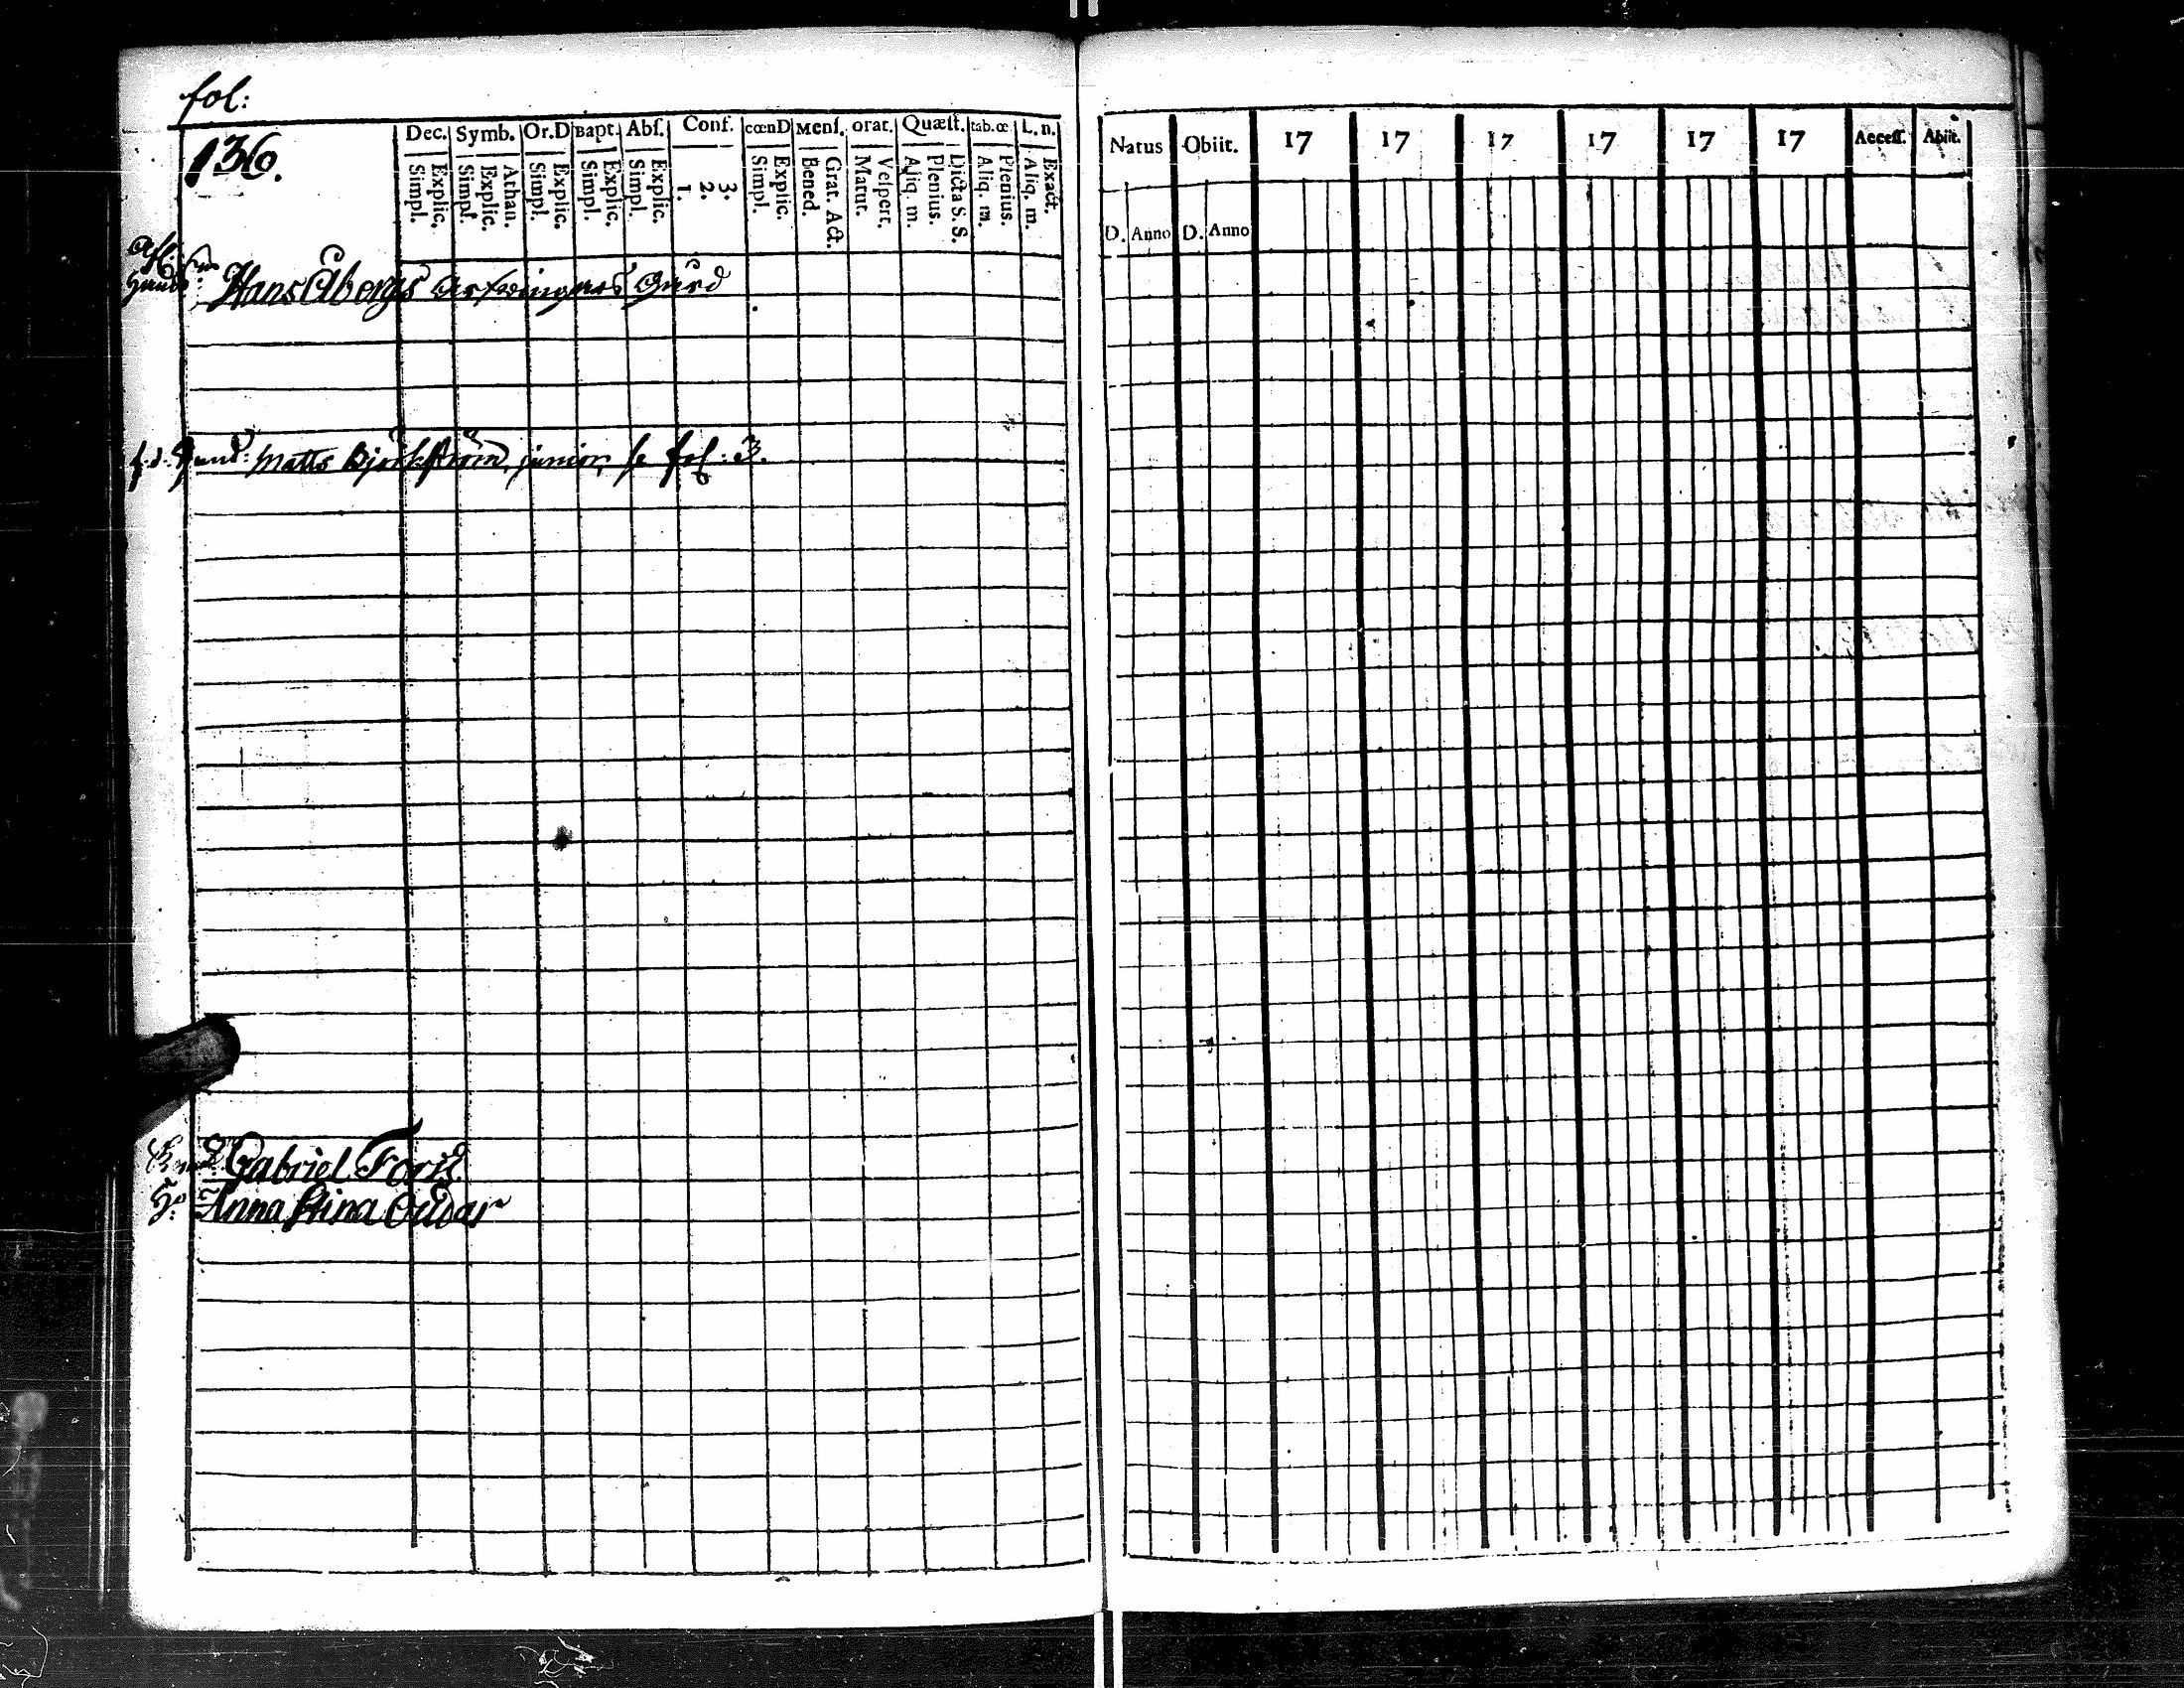 fol:
136.
Dec. Symb. Or.D Bapt. Abſ. Conf. cœnD Menſ. orat. Quæſt. tab.œ L. n.
Simpl. Explic. Simpl. Explic. Athan. Simpl. Explic. Simpl. Explic. Simpl. Explic. 1. 2. 3. Simpl. Explic. Bened. Grat. Act. Matut. Veſpert. Aliq. m. Plenius. Dicta S. S. Aliq. m. Plenius. Aliq. m. Exact.
Hans Åbergs arfwingars Gård
Matts Björkström junior, se fol: 3.
Gabriel Foris
Anna Stina
Natus Obiit. 17 17 17 17 17 17 Acceſſ. Abiit.
D. Anno D. Anno